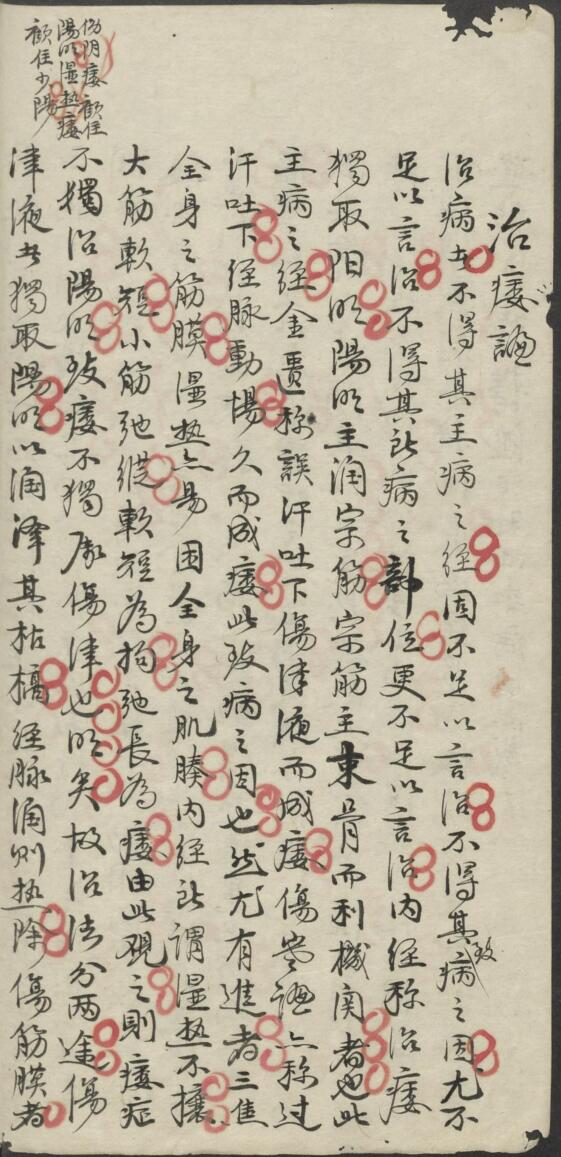 治痿論
治病者不得其主病之經固不足以言治不得其致病之因尤不
足以言治不得其致病之部位更不足以言治內經称治痿
獨取阳明陽明主润宗筋宗筋主束骨而利機関者也此
主病之經金匱称誤汗吐下傷津液而成痿傷寒論亦称过
汗吐下經脉動惕久而成痿此致病之因也然尤有進者三焦
全身之筋膜湿热亦易困全身之肌腠内經所謂湿热不攘
大筋軟短小筋弛縱軟短為拘弛長為痿由此觀之則痿症
不獨治陽明致痿不獨 傷津也明矣故治法分兩途傷
津液者獨取陽明以润澤其枯槁經脉润则热除傷筋膜者
傷阴痿 顧住
陽明湿热痿
顧住少陽